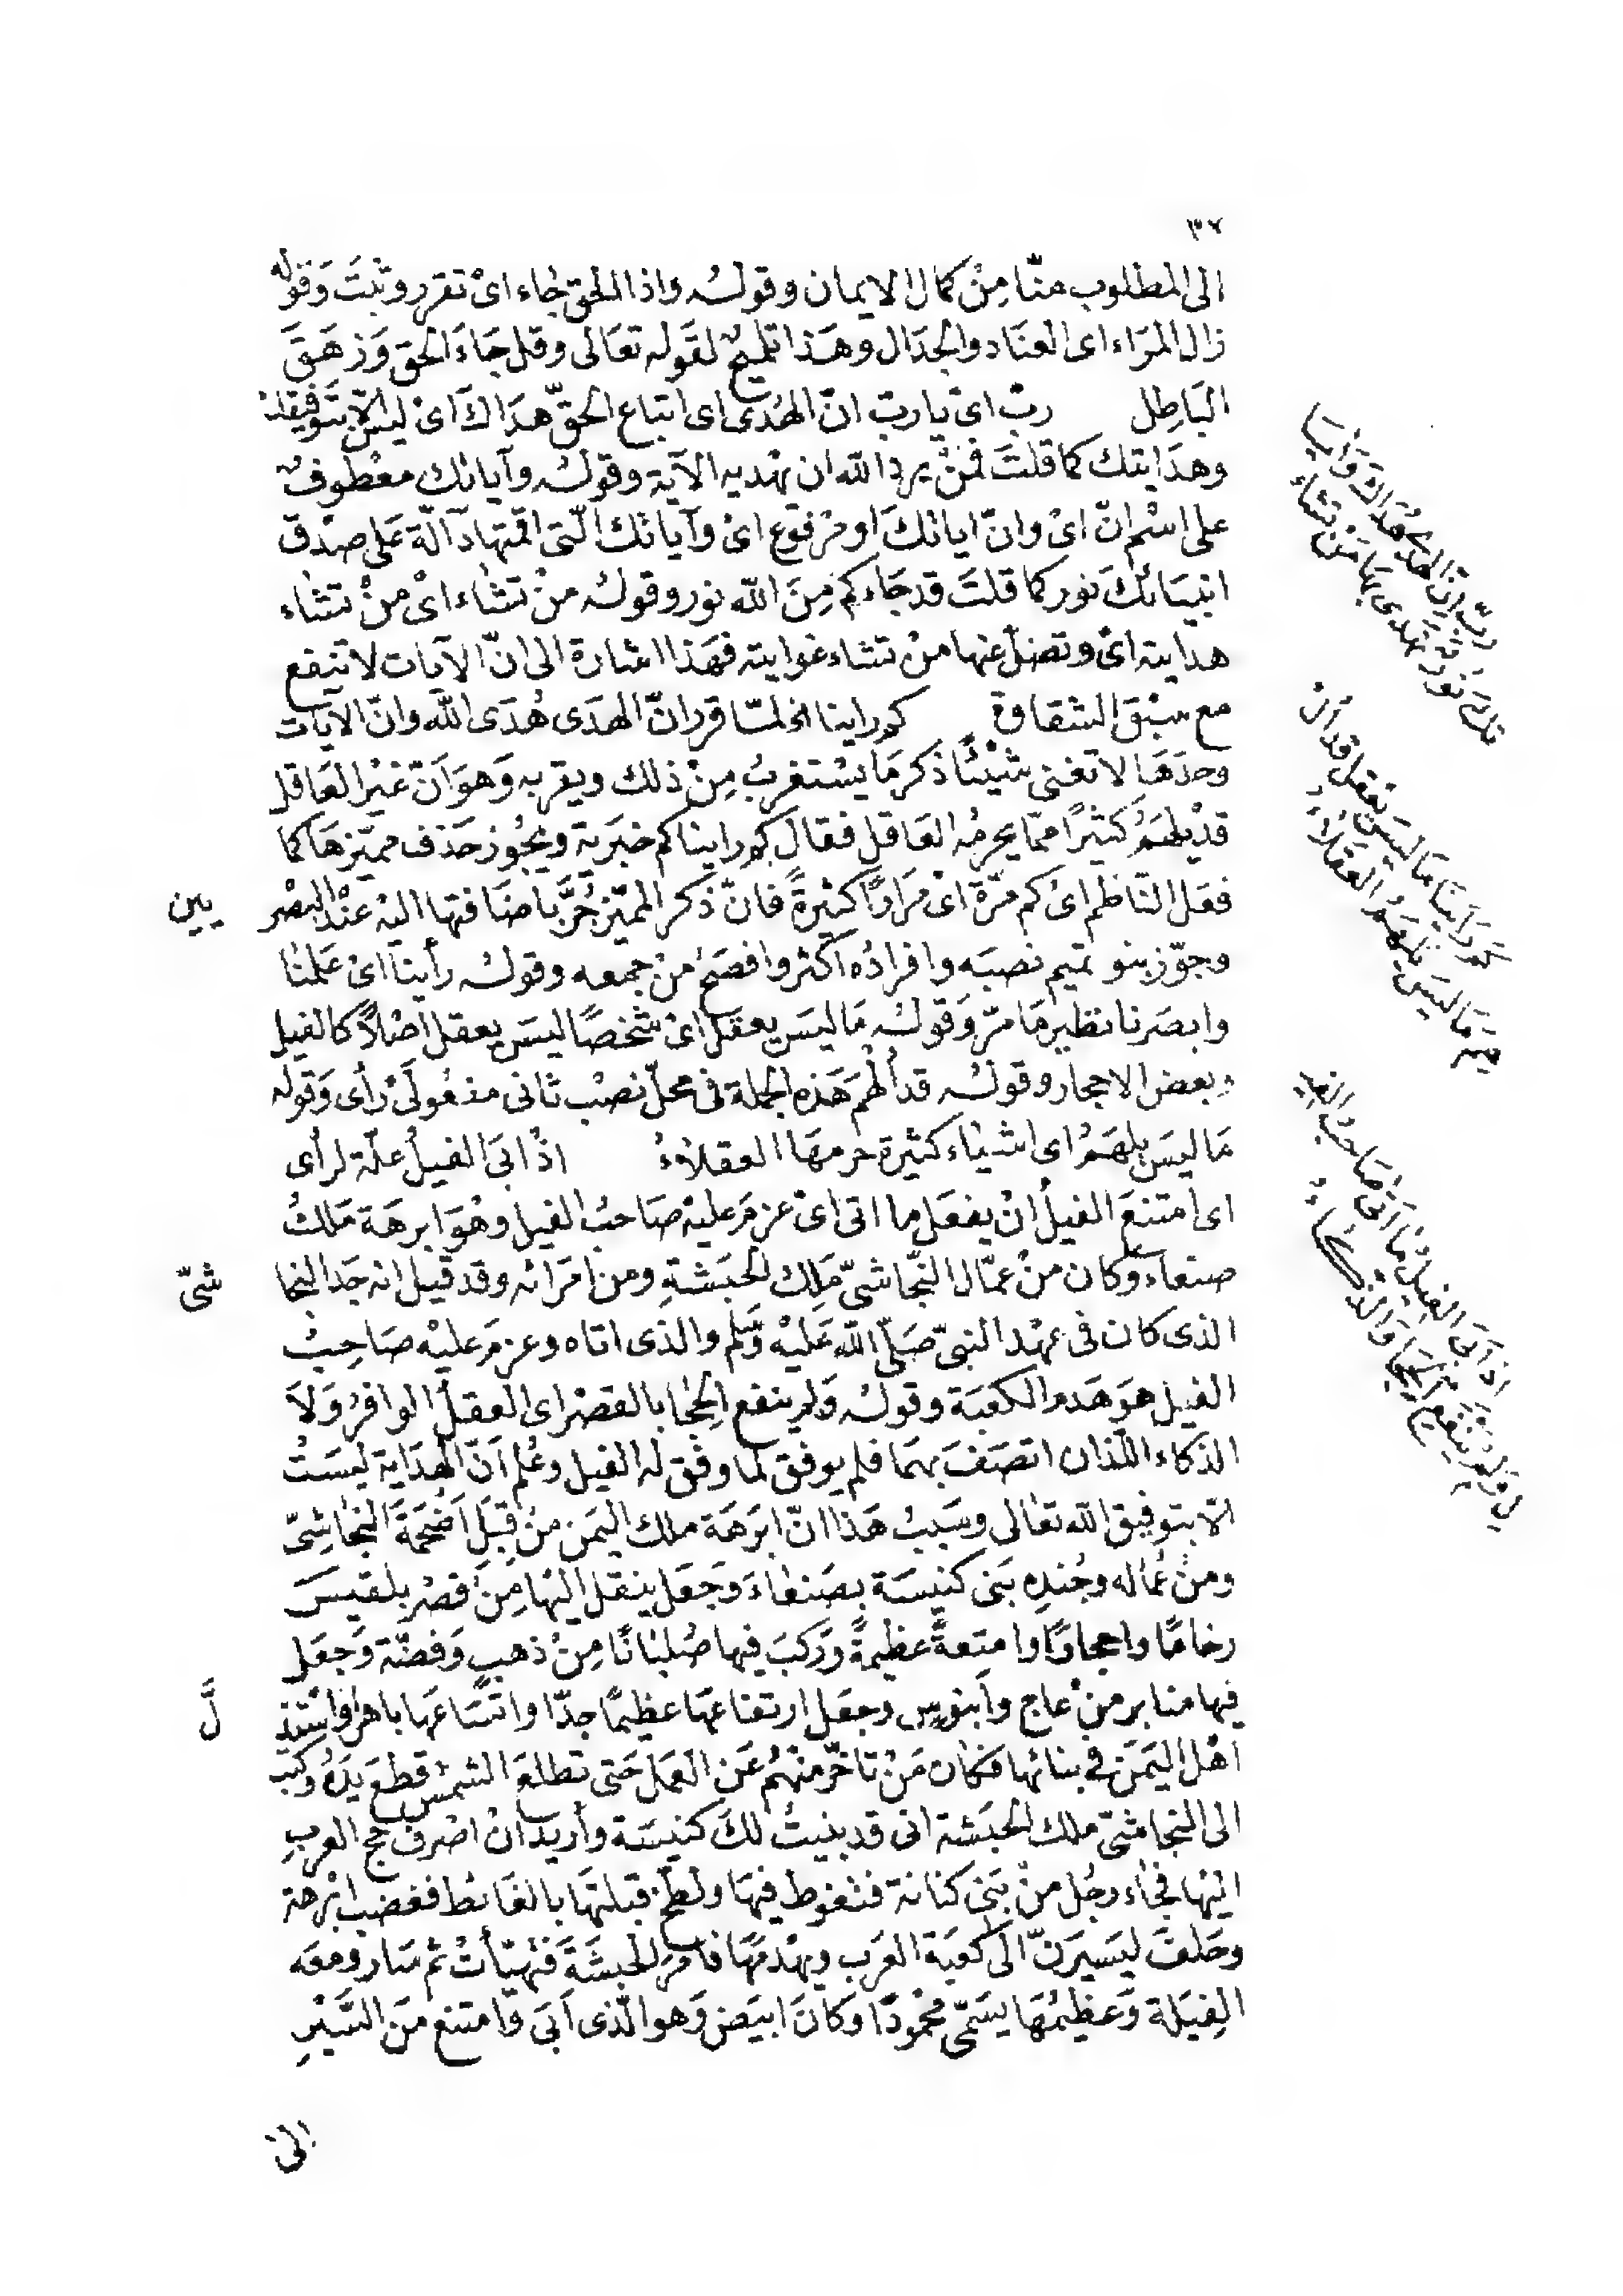 ٣٧
الى المطلوب منّا مِنْ كمال الايمان وقولـُه واذا الحق جاء اىْ تقرر وثبتَ وَقوله
زال المرَاء اى العنَاد والجدَال وهَذا تلميحٌ لقَوله تعَالى وقل جَاءَ الحق وَزهَقَ
البَاطِل ربّ اىْ يا ربّ انّ الهُدى اى اتباع الحقّ هدَاكَ اىْ ليسَ الّا بتَوفيقك
وهدَايتك كما قلتَ فمنْ يرد الله ان يهْديه الآية وقولـُه وآياتك معْطوفٌ
على اسْم انّ اىْ وانّ اياتكَ او مرْفوع اىْ وآياتك الّتى اقمتها دآلّة عَلى صدْق
انبيَائكَ نور كما قلتَ قد جَاءكم مِنَ الله نور وقولـُه منْ تشاء اىْ منْ تشاء
هدايته اىْ وتضلّ عنها منْ تشاء غوايته فهَذا اشارة الى انّ الآيات لا تنفع
مع سبْق الشقاوة كم راينا الخ لمّا قرر انّ الهدَى هُدَى الله وانّ الآيات
وحدَهَا لا تغنى شيْئًا ذكر مَا يسْتغربُ مِنْ ذلك ويقربه وَهوَ اَنّ غيْر العَاقل
قدْ يلهَمُ كثيرًا ممّا يحرمُه العَاقل فقالَ كم راينا كم خبَرية ويجُوز حَذف مميّزهَا كما
فعَل النّاظم اىْ كم مرّة اىْ مرَارًا كثيرةً فانّ ذكر المميّز جُرَّ باضَافتها اليْه عنْد البصْر يين
وجوّز بنو تميم نصبَه وافرادُه اكثر وافصَح منْ جمعه وقولـُه رأينا اىْ عَلمْنا
وابصَرنا نظير مَا مرّ وَقولـُه مَا ليسَ يعقل اىْ شخصًا ليسَ يعقل اصْلاً كالفيل
وبعض الاحجار وقولـُه قد اُلْهمَ هَذه الجملة فى محلّ نصْب ثانى مفعُولَىْ رأى وَقوله
مَا ليسَ يلهَمُ اى اشيَاء كثيرة حرمهَا العقلاءُ اذْ ابَى الفيلُ علّة لرأى
اى امتنعَ الفيلُ انْ يفعَل ما اتى اىْ عزمَ عليْه صَاحبُ الفيل وهْوَ ابرهَة مَلكُ
صنعاء وكان منْ عمّال النّجاشىّ مَلِك الحبَشةِ ومن امَرائه وقد قيل انه جَد النجا شىّ
الذى كان فى عهْد النبىّ صَلّى الله عَليْه وسَّلم والذى اتاه وعزمَ عليْه صَاحِبُ
الفيل هوَ هَدم الكعبَة وقولـُه وَلم ينفع الِحجَا بالقصْر اى العقلُ الوافرُ وَلاَ
الذكاء اللّذان اتصَفَ بهمَا فلم يوفق لما وفّق له الفيل وعُلم اَنّ الهدَاية ليسَتْ
الّا بتوفيق الله تعَالى وسَببُ هَذا انّ ابرَهَة ملك اليمَن منْ قِبَلِ اَصْحَمَةَ النّجاشِىّ
ومنْ عُماله وجُندِه بَنى كنيسَة بصَنعاءَ وَجَعَل ينقل اليْهَا مِنَ قصْر بلقيسَ
رخامًا واحجارًا وامتعةً عظيمةً وَركبَ فيها صُلبَانًا مِنْ ذهبٍ وَفضّة وَجعَل
فيها منابر منْ عاج واَبنوس وجعَل ارتفاعَهَا عظيمًا جدّا واتسَاعَهَا باهرًا وَاسْتذ لَّ
اهْل اليَمَن فى بنائها فكان مَنْ تاخّر منْهُم عَن العَمل حَتى تطلعَ الشمْسُ قطعَ يدَهُ وكتب
الى النّجاشىّ ملك الحبَشة انى قد بنيتُ لكَ كنيسَة وأريدُ انْ اصْرفَ حجّ العرَبِ
اليْهَا فجَاء رجُل منْ بَنى كنانة فتغوط فيهَا ولطّخ قبلتَهَا بالغَائط فغضب ابْرهة
وحَلفَ ليَسيرَنّ الَى كعبَة العَرَب ويهْدمُهَا فامَر الحبشَةَ فتهيّأتْ ثم سَار ومعَه
الفيَلة وَعظيمُهَا يسَمّى محْمودًا وَكانَ ابيَض وَهو الّذى اَبَى وَامتنع مَن السَّيْرِ
الىْ
ربّ اِنّ الهدَى هُدَاكَ وَآيَا
تكَ نورٌ تهدى بهَا مَنْ تشاء
كم رَأينَا مَا ليسَ يَعقِل قد اُلْـ
هِمَ مَا ليسَ يُلهَمُ العقلاءُ
اذْ اَبَى الفِيلُ مَا اَتَى صَاحبُ الفيـ
لِ وَلم يَنفعِ الحِجَا وَالذكاءُ